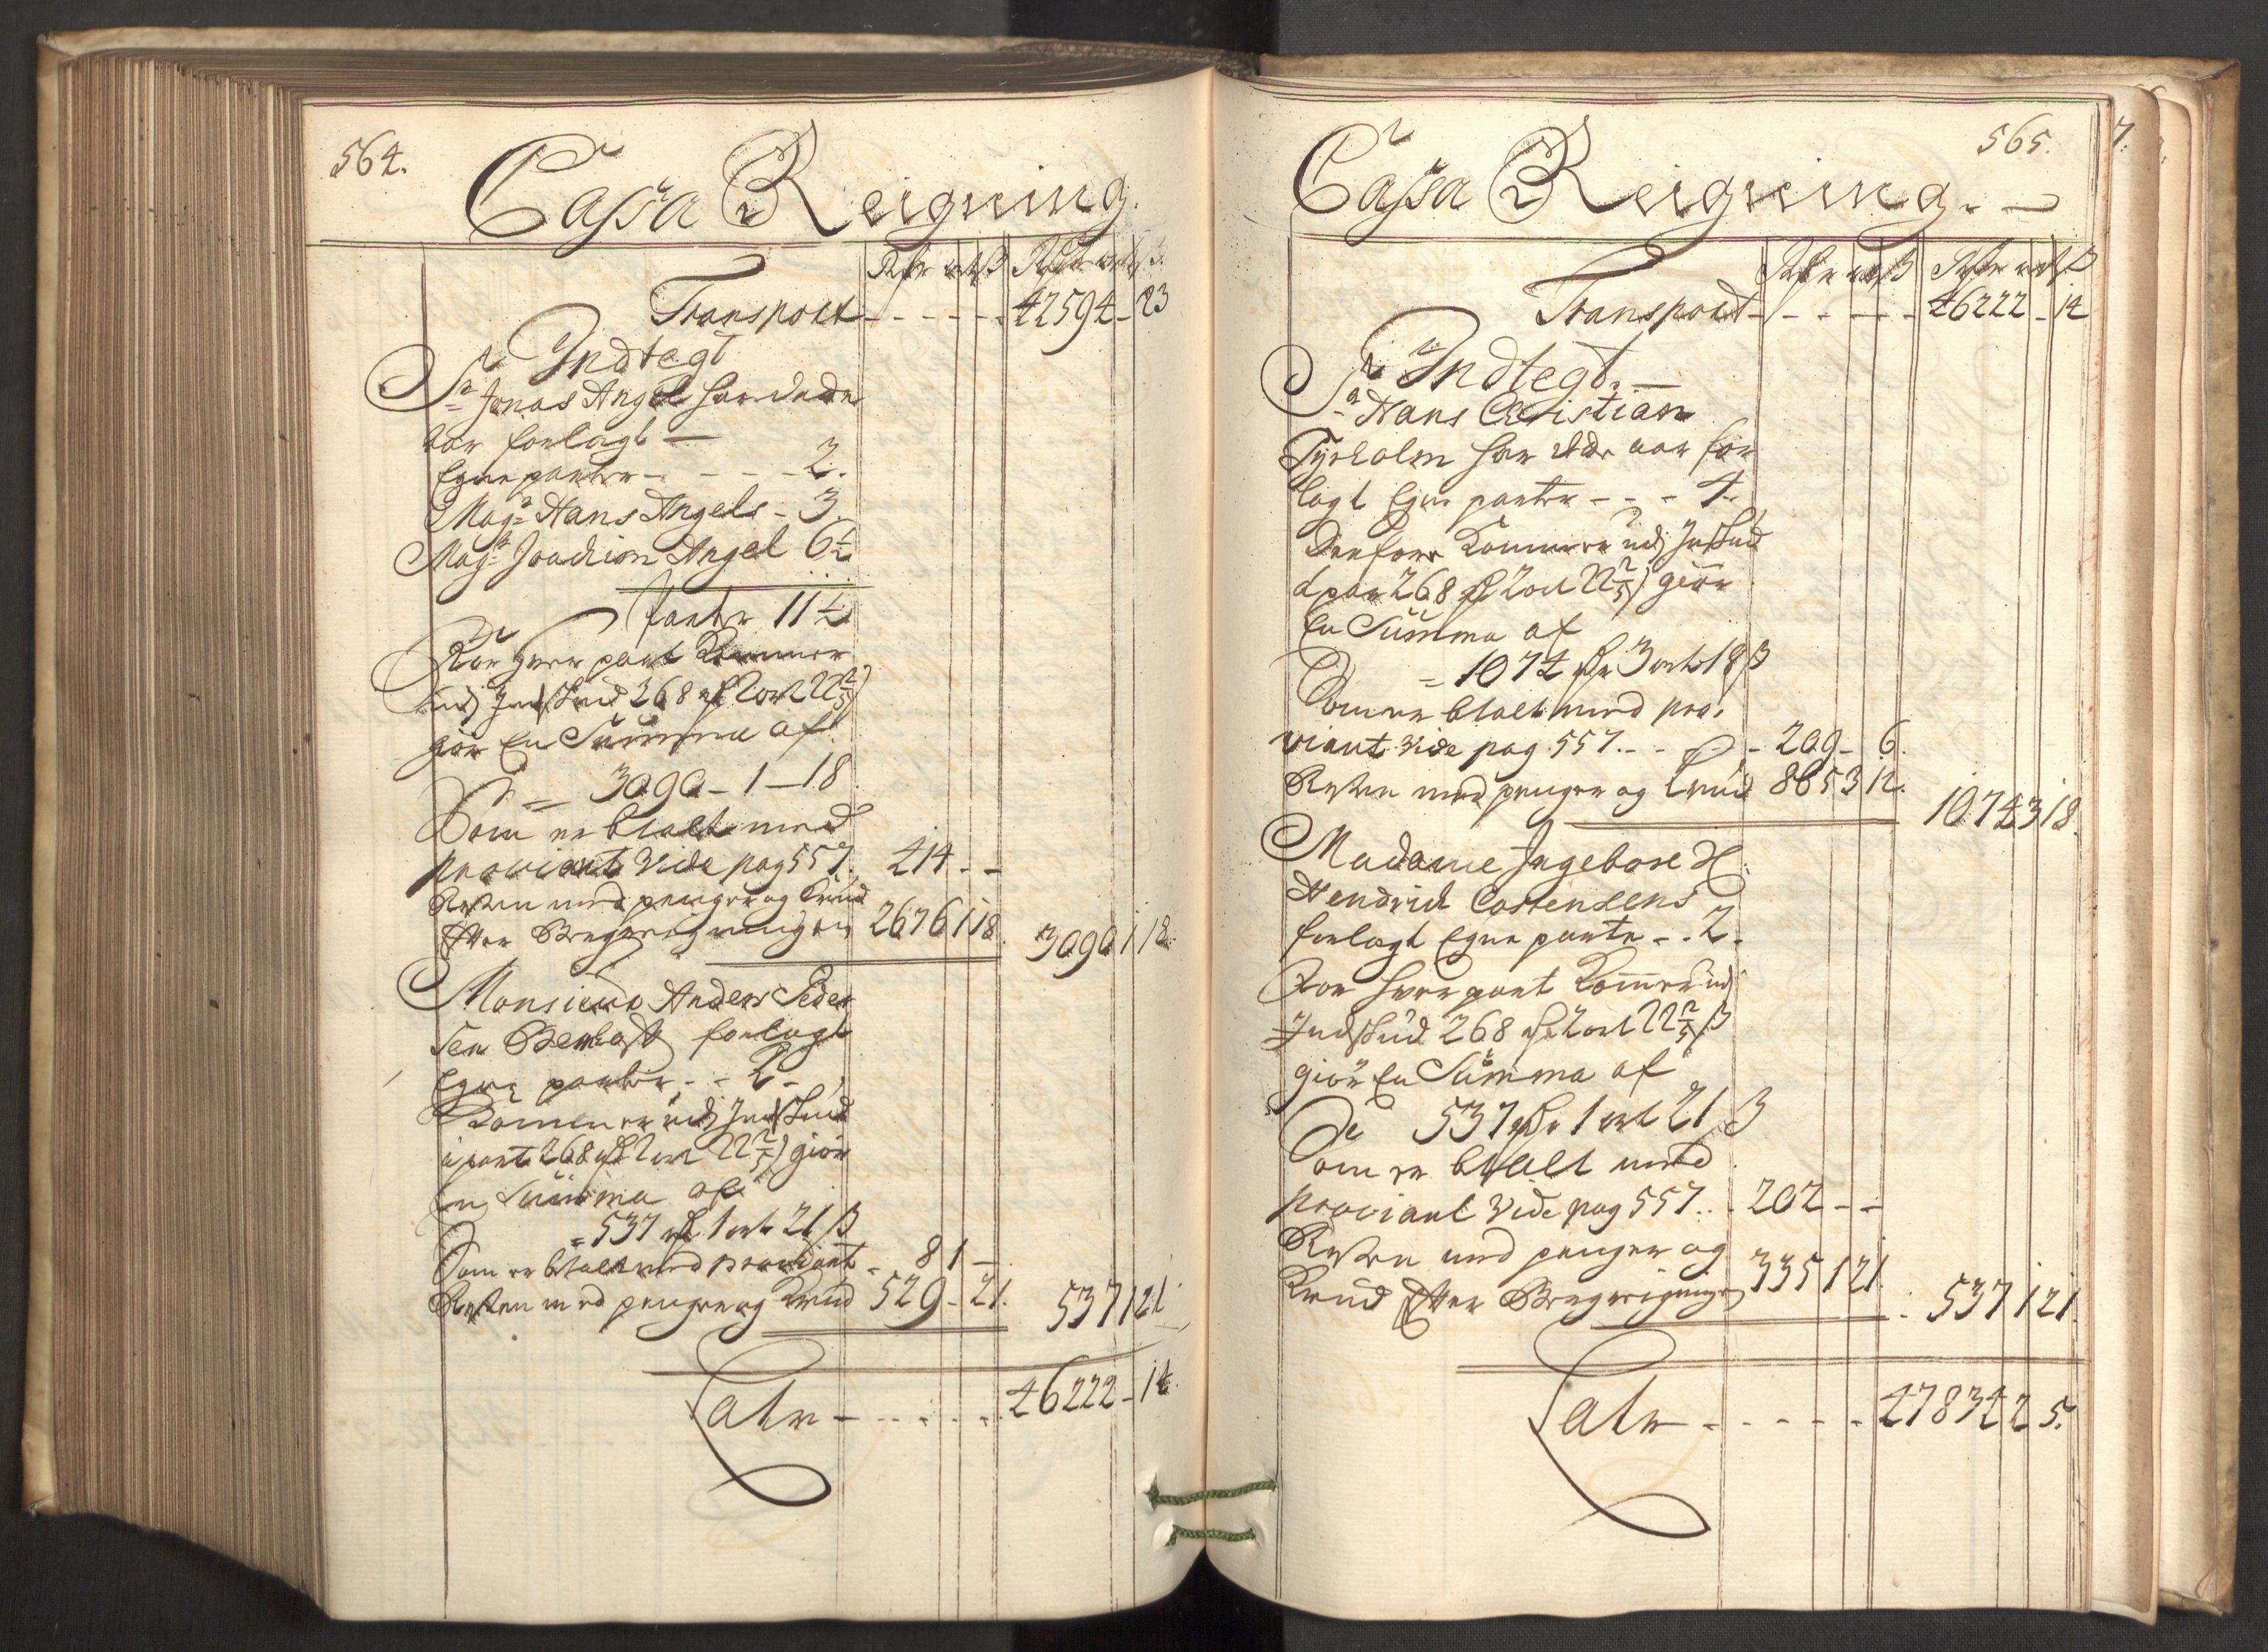 564.
Cassa Reigning.
Rdr ort ß Rdr ort ß
Transport - - - - - 42594 - 23
Indtegt
Sr Jonas Angel har dede
aar forlagt —
Egne parter - - - - 2.
Magr Hans Angels - 3
Magr Joachim Angel 6½
parter 11½
For hver part kommer
udj Indskud 268 rdr 2 ort 22 2/5 ß
giör En Summa af
= 3090 - 1 - 18
Som er btalt med
proviant Vide pag 557. 414 - -
Resten med penger og Krud
Efter Bregnigningen 2676 1 18. 3090 1 18.
Monsieur Anders Peder
sen forlagt
Egne parter - - 2 -
Kommer udj Indskud
a part 268 rdr 2 ort 22 2/5 ß giör
En Summa af
= 537 rdr 1 ort 21 ß
Som er btalt med proviant - 8 1 -
Resten med penger og Krud 529 - 21. 537 1 21
Latr - - - - - 46222 - 14.
565.
Cassa Reigning. —
Rdr ort ß Rdr ort ß
Transport - - - - - 46222 - 14
Indtegt. —
Sr Hans Christian
Tyrholm har dede aar for
lagt Egne parter - - - 4.
Derfore kommer udj Indskud
a part 268 rdr 2 ort 22 2/5 ß giör
En Summa af
= 1074 rdr 3 ort 18 ß
Som er btalt med pro,
viant Vide pag 557. - - 209 - 6.
Resten med penger og Krud 865 3 12. 1074 3 18.
Madame Ingebore Sl:
Hendrich Costensens
forlagt Egne parte - . 2.
For hver part Kommer udj
Indskud 268 rdr 2 ort 22 2/5 ß
giör En Summa af
537 rdr 1 ort 21 ß
Som er btalt med
proviant Vide pag 557. . . 202 - -
Resten med penger og
Krud Efter Bregnigningen 335 1 21 537 1 21.
Latr - - - - - 47834 2 5.